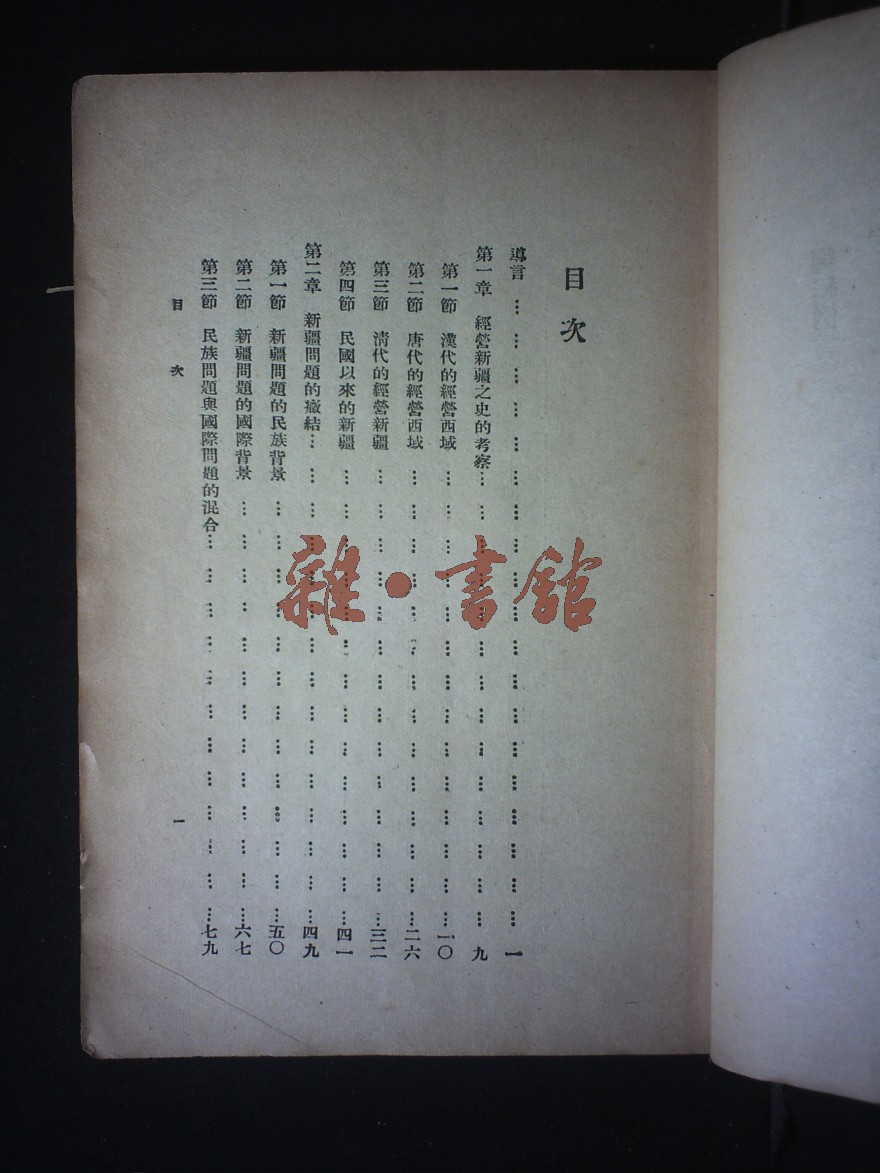 目次
導言 … … … … … … … … … … … … … … … … … … … 一
第一章 經營新疆之史的考察… … … … … … … … … … … … … … 九
第一節 漢代的經營西域 … … … … … … … … … … … … … …一〇
第二節 唐代的經營西域 … … … … … … … … … … … … … …二六
第三節 清代的經營新疆 … … … … … … … … … … … … … …三二
第四節 民國以來的新疆 … … … … … … … … … … … … … …四一
第二章 新疆問題的癥結… … … … … … … … … … … … … … …四九
第一節 新疆問題的民族背景 … … … … … … … … … … … … …五〇
第二節 新疆問題的國際背景 … … … … … … … … … … … … …六七
第三節 民族問題與國際問題的混合… … … … … … … … … … … …七九
目次
一
雜•書館